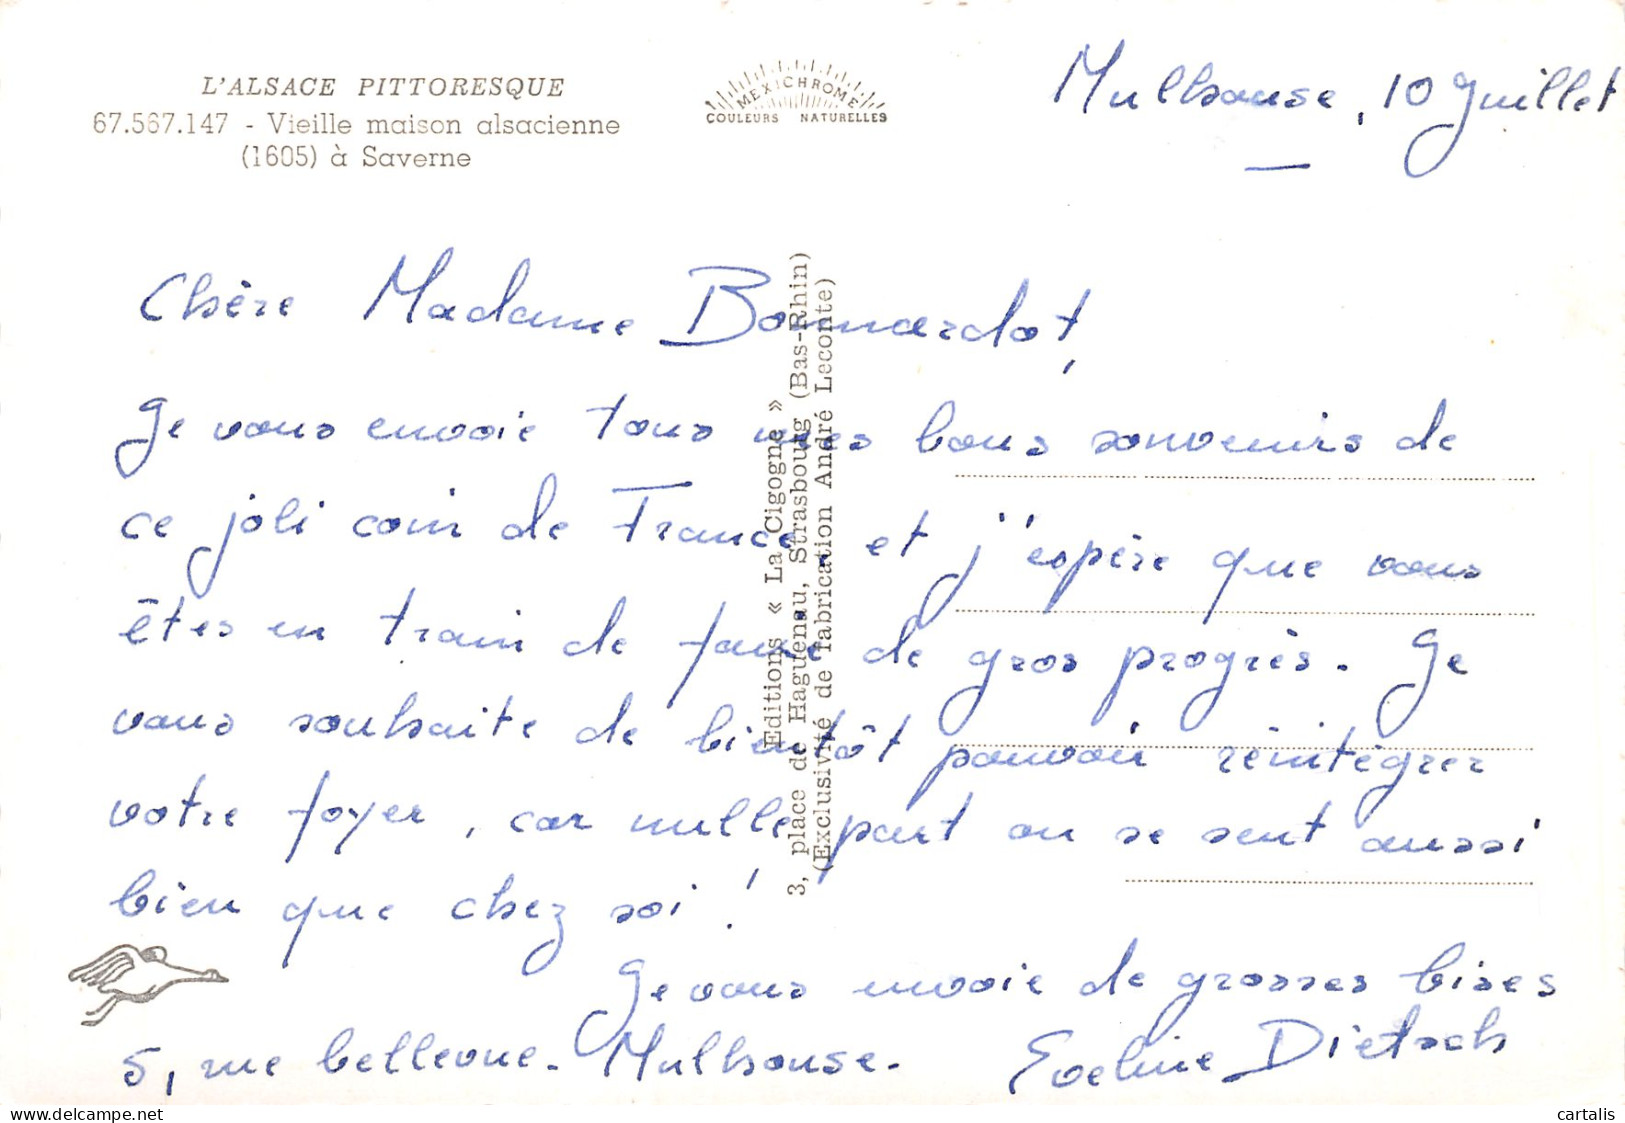 L'ALSACE PITTORESQUE
67.567.147 - Vieille maison alsacienne
(1605) à Saverne
MEXICHROME
COULEURS NATURELLES
Mulhouse, 10 Juillet
Chère Madame Bonnardot,
Je vous envoie tous mes bons souvenirs de
ce joli coin de France, et j'espère que vous
êtes en train de faire de gros progrès. Je
vous souhaite de bientôt pouvoir réintégrer
votre foyer, car nulle part on se sent aussi
bien que chez soi !
Je vous envoie de grosses bises
5, rue bellevue. Mulhouse. Eveline Dietsch
Editions « La Cigogne »
3, place de Haguenau, Strasbourg (Bas-Rhin)
(Exclusivité de fabrication André Leconte)
www.delcampe.net
cartalis